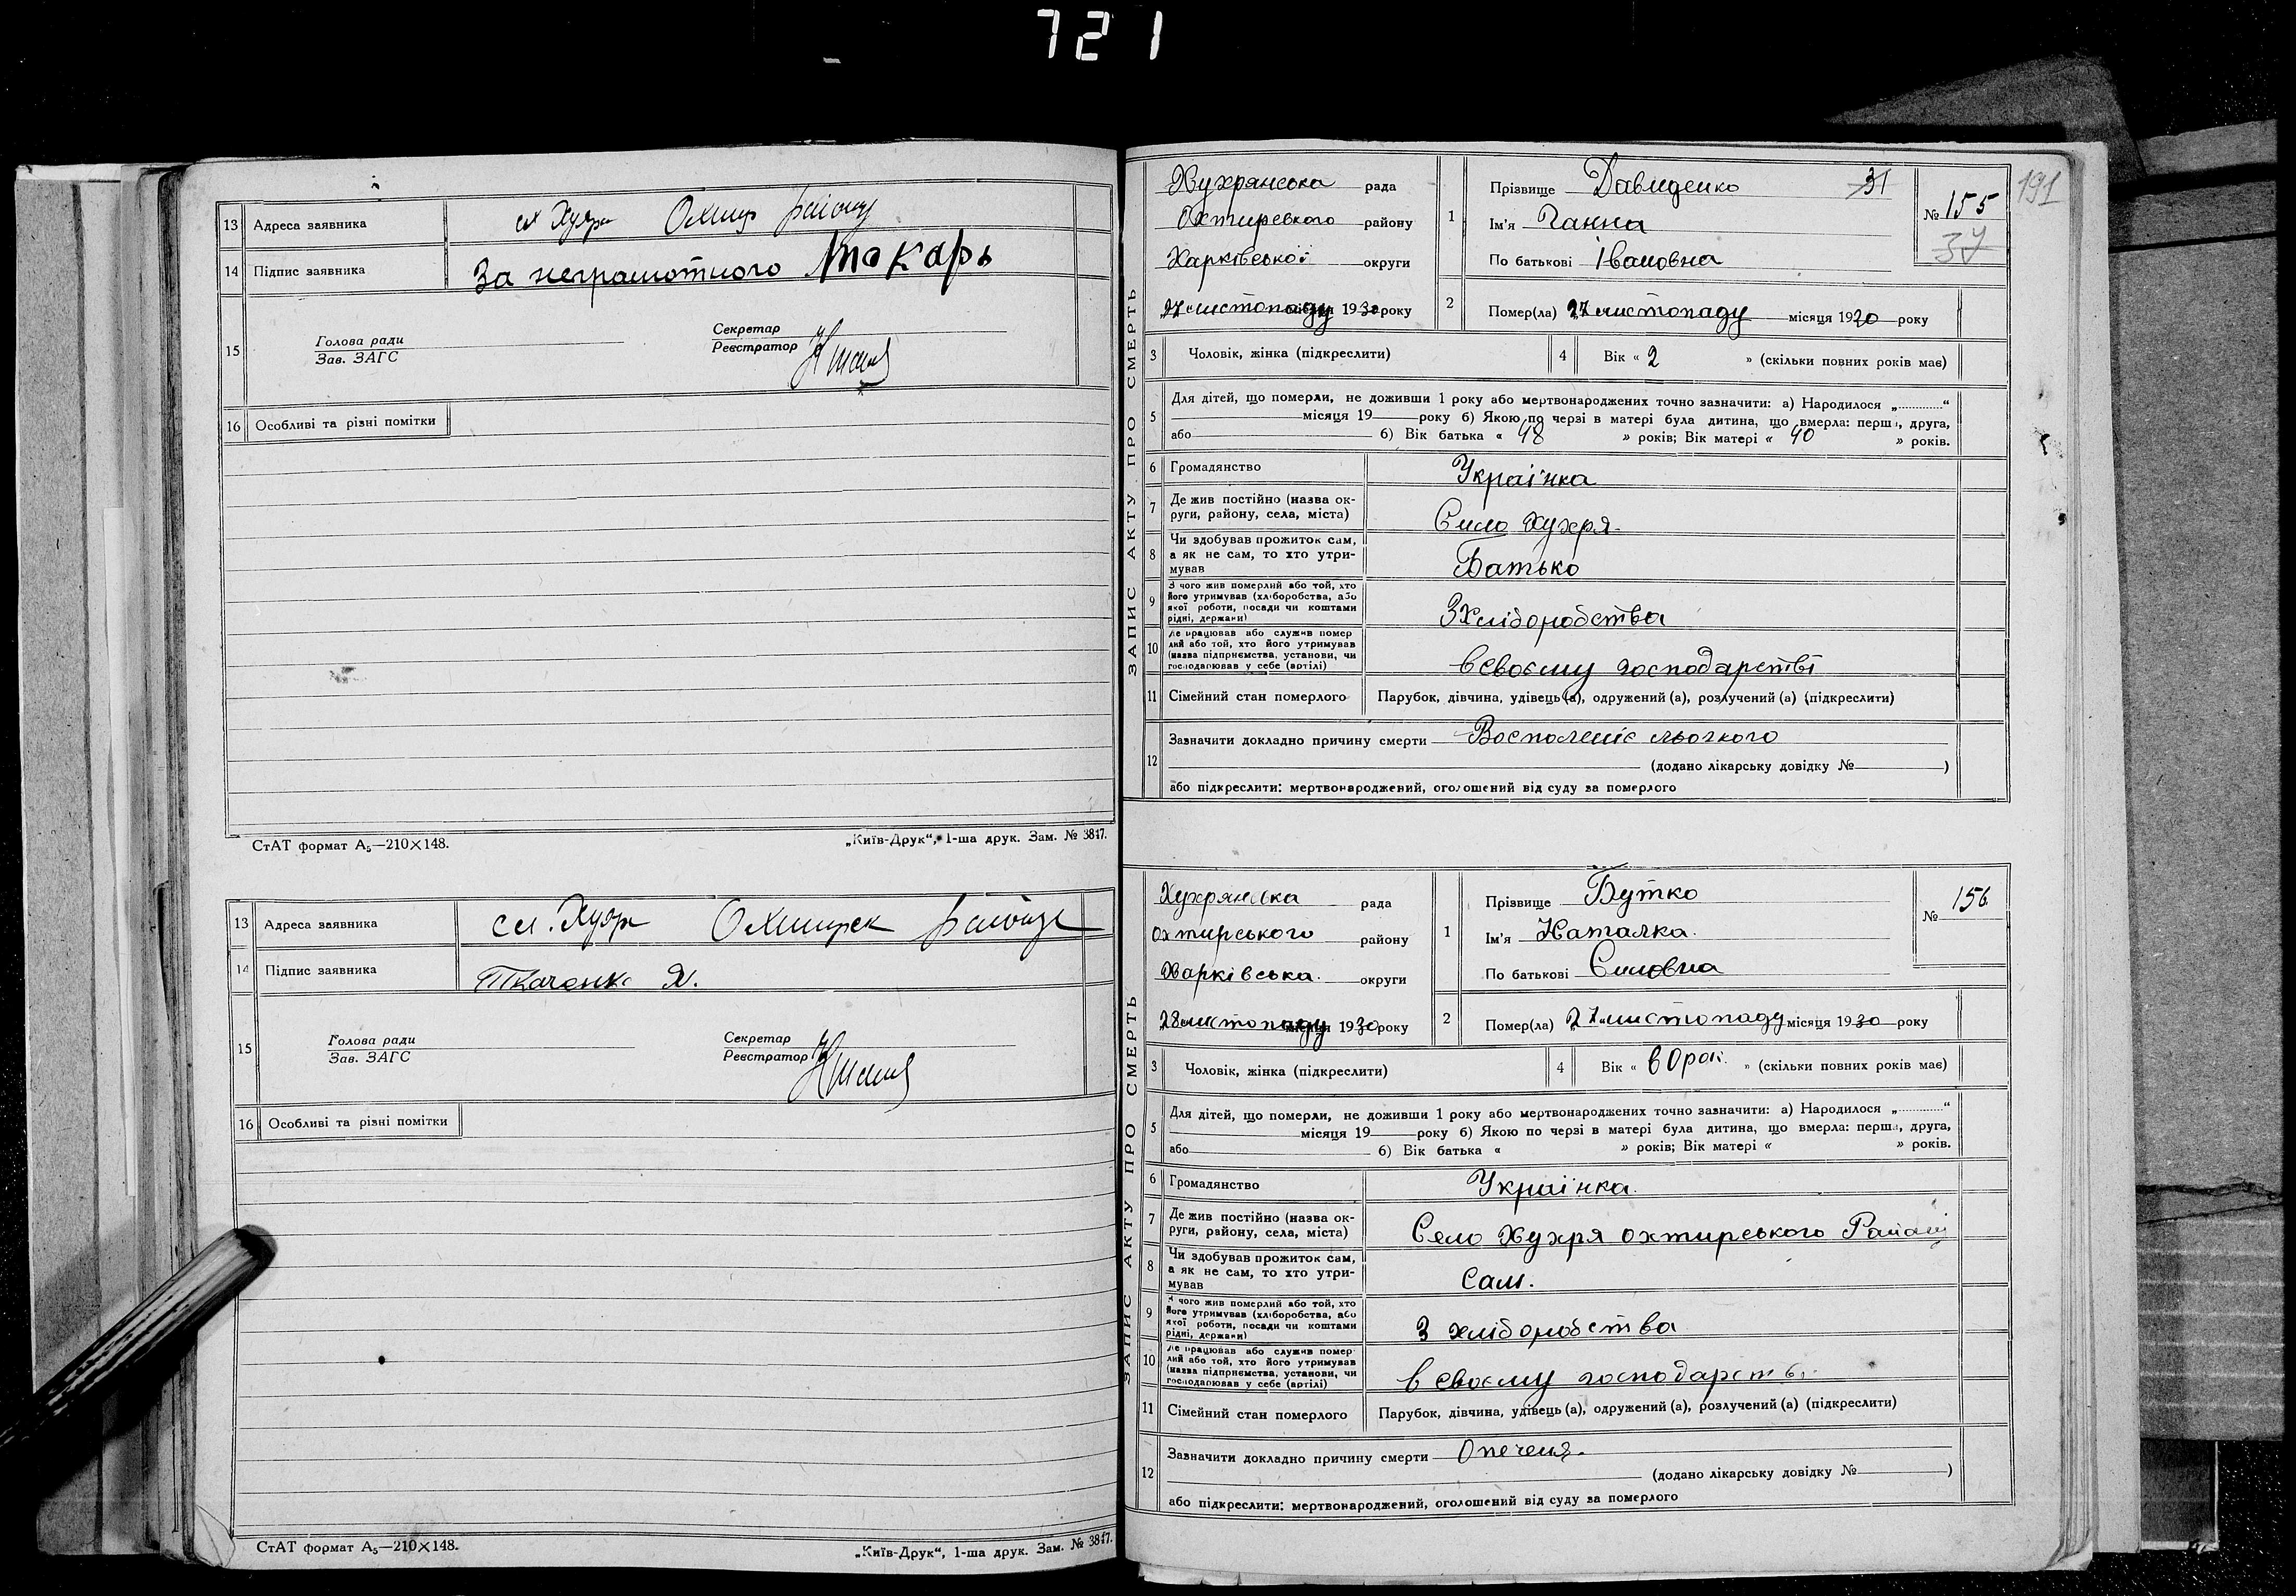 721
13 Адреса заявника сл Хухра Охтир району
14 Підпис заявника За неграмотного Токарь
15 Голова ради
Зав. ЗАГС
Секретар
Реєстратор
16 Особливі та різні помітки
СтАТ формат А₅—210×148.
„Київ-Друк“, 1-ша друк. Зам. № 3817.
13 Адреса заявника сл. Хухр Охтирск району
14 Підпис заявника Ткаченко Я.
15 Голова ради
Зав. ЗАГС
Секретар
Реєстратор
16 Особливі та різні помітки
СтАТ формат А₅—210×148.
„Київ-Друк“, 1-ша друк. Зам. № 3817.
191
ЗАПИС АКТУ ПРО СМЕРТЬ
Хухрянська рада
Охтирського району
Харківської округи
27 листопаду місяця 1930 року
1 Прізвище Давиденко 31
Ім'я Ганна
По батькові Івановна
№ 155
37
2 Помер(ла) 27 листопаду місяця 1930 року
3 Чоловік, жінка (підкреслити)
4 Вік « 2 » (скільки повних років має)
5 Для дітей, що померли, не доживши 1 року або мертвонароджених точно зазначити: а) Народилося „............“
місяця 19 року б) Якою по черзі в матері була дитина, що вмерла: перша, друга,
або б) Вік батька « 48 » років; Вік матері « 40 » років.
6 Громадянство Українка
7 Де жив постійно (назва округи, району, села, міста) Село Хухря.
8 Чи здобував прожиток сам, а як не сам, то хто утримував Батько
9 З чого жив померлий або той, хто його утримував (хліборобства, або якої роботи, посади чи коштами рідні, держави) З Хліборобства
10 Де працював або служив померлий або той, хто його утримував (назва підприємства, установи, чи господарював у себе (артілі) в своєму господарстві
11 Сімейний стан померлого Парубок, дівчина, удівець (а), одружений (а), розлучений (а) (підкреслити)
12 Зазначити докладно причину смерти Воспаленіє льогкого
(додано лікарську довідку № )
або підкреслити: мертвонароджений, оголошений від суду за померлого
ЗАПИС АКТУ ПРО СМЕРТЬ
Хухрянська рада
Охтирського району
Харківська. округи
28 листопаду місяця 1930 року
1 Прізвище Бутко
Ім'я Наталка.
По батькові
№ 156
2 Помер(ла) 27 листопаду місяця 1930 року
3 Чоловік, жінка (підкреслити)
4 Вік « 60 рок. » (скільки повних років має)
5 Для дітей, що померли, не доживши 1 року або мертвонароджених точно зазначити: а) Народилося „............“
місяця 19 року б) Якою по черзі в матері була дитина, що вмерла: перша, друга,
або б) Вік батька « » років; Вік матері « » років.
6 Громадянство Українка.
7 Де жив постійно (назва округи, району, села, міста) Село Хухря Охтирського Району
8 Чи здобував прожиток сам, а як не сам, то хто утримував Сам.
9 З чого жив померлий або той, хто його утримував (хліборобства, або якої роботи, посади чи коштами рідні, держави) З хліборобства
10 Де працював або служив померлий або той, хто його утримував (назва підприємства, установи, чи господарював у себе (артілі) в своєму господарстві
11 Сімейний стан померлого Парубок, дівчина, удівець (а), одружений (а), розлучений (а) (підкреслити)
12 Зазначити докладно причину смерти Опеченя.
(додано лікарську довідку № )
або підкреслити: мертвонароджений, оголошений від суду за померлого